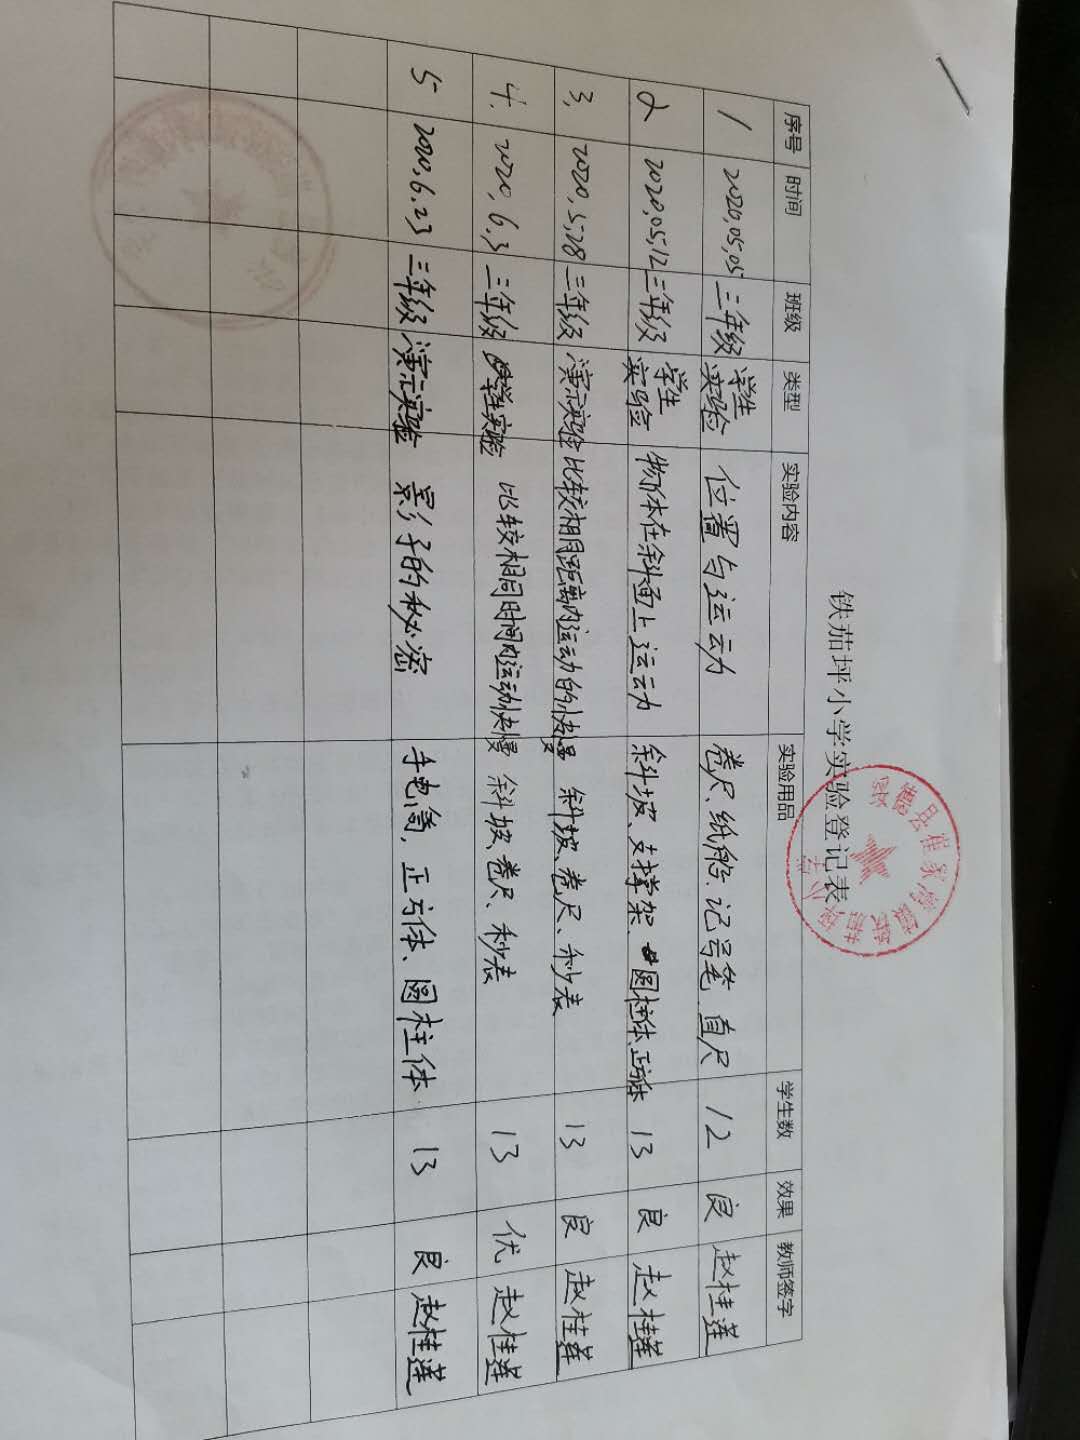 铁茄坪小学实验登记表
序号 时间 班级 类型 实验内容 实验用品 学生数 效果 教师签字
1 2020.05.05 三年级 学生实验 位置与运动 卷尺、纸船、记号笔、直尺 12 良 赵桂莲
2 2020.05.12 三年级 学生实验 物体在斜面上运动 斜坡、支撑架、圆柱体、正方体 13 良 赵桂莲
3. 2020.5.28 三年级 演示实验 比较相同距离内运动的快慢 斜坡、卷尺、秒表 13 良 赵桂莲
4. 2020.6.3 三年级 学生实验 比较相同时间内运动快慢 斜坡、卷尺、秒表 13 优 赵桂莲
5 2020.6.23 三年级 演示实验 影子的秘密 手电筒、正方体、圆柱体 13 良 赵桂莲